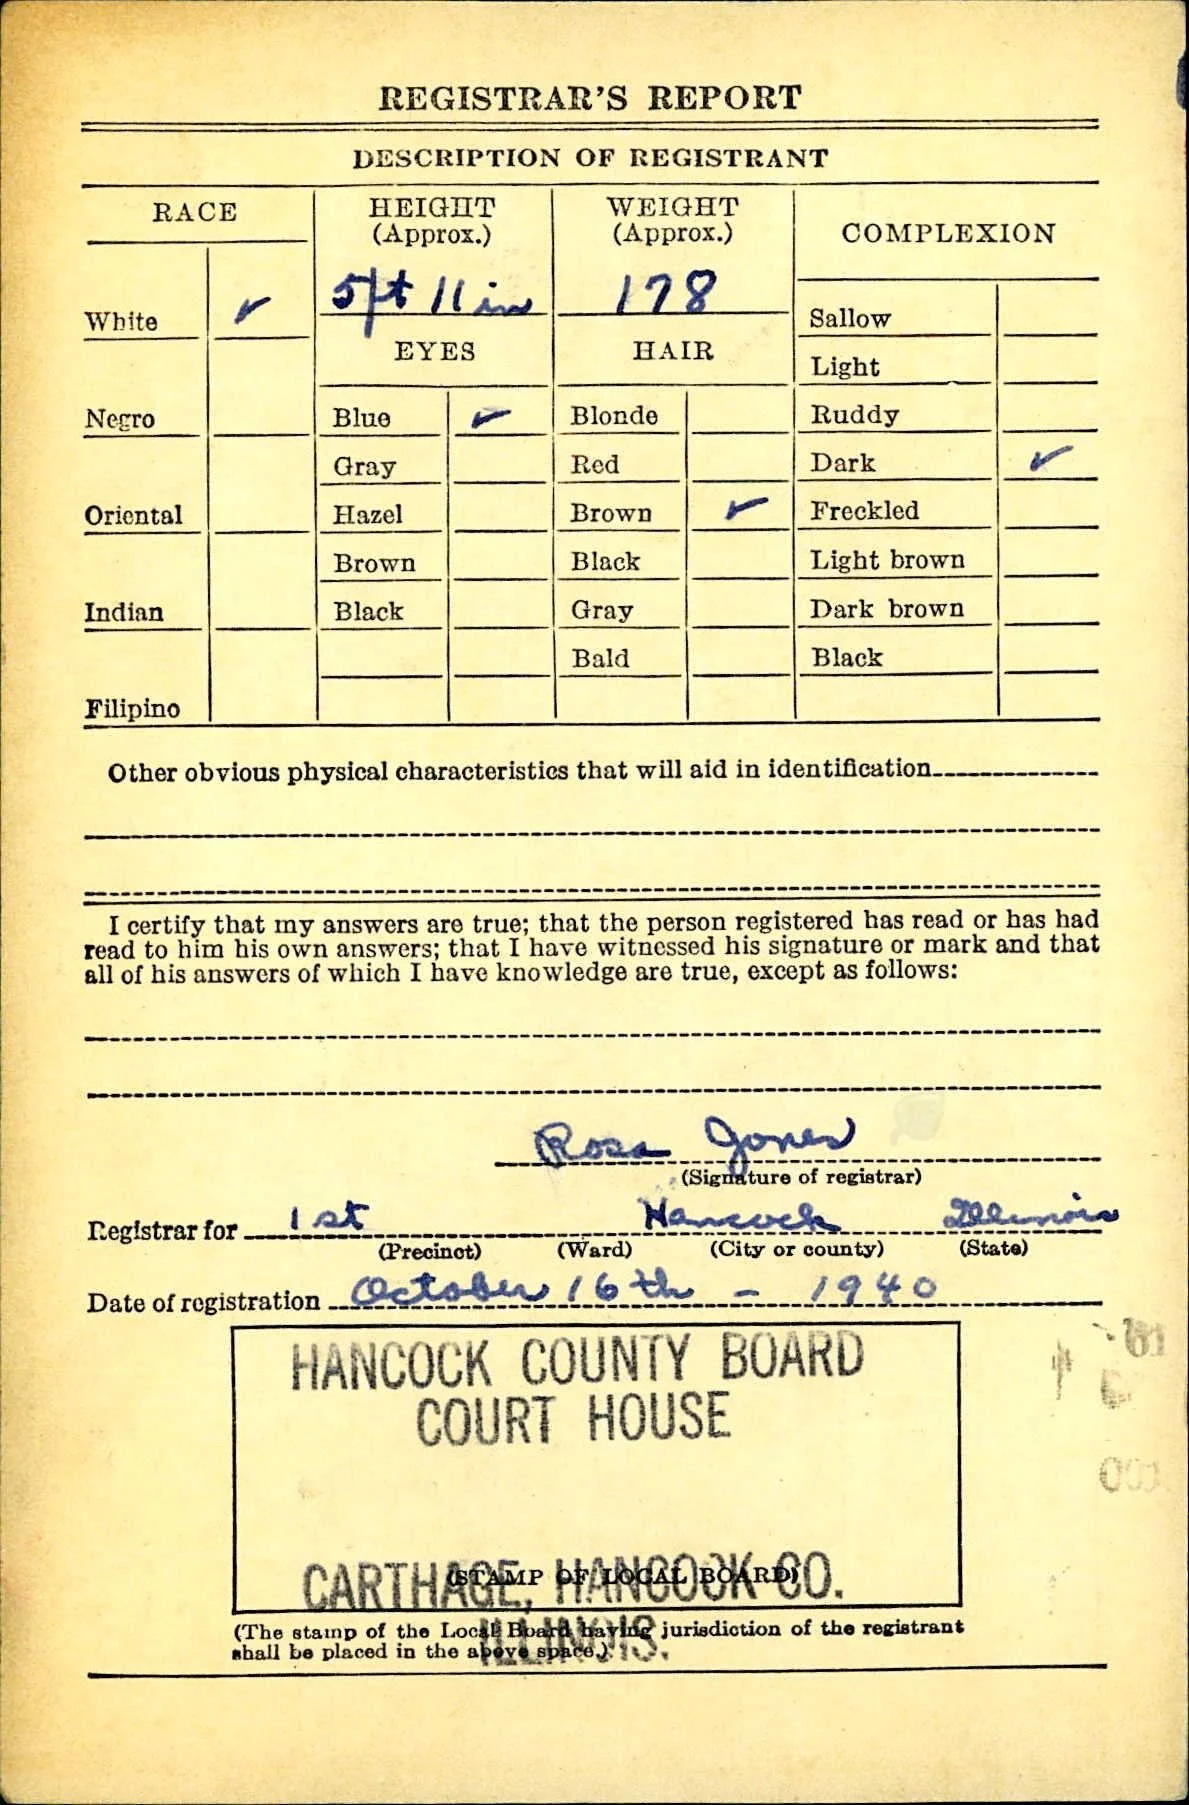 REGISTRAR'S REPORT
DESCRIPTION OF REGISTRANT
RACE HEIGHT (Approx.) WEIGHT (Approx.) COMPLEXION
White ✓ 5 ft 11 in 178 Sallow
EYES HAIR Light
Negro Blue ✓ Blonde Ruddy
Gray Red Dark ✓
Oriental Hazel Brown ✓ Freckled
Brown Black Light brown
Indian Black Gray Dark brown
Bald Black
Filipino
Other obvious physical characteristics that will aid in identification
I certify that my answers are true; that the person registered has read or has had
read to him his own answers; that I have witnessed his signature or mark and that
all of his answers of which I have knowledge are true, except as follows:
Rosa Jones
(Signature of registrar)
Registrar for 1st Hancock Illinois
(Precinct) (Ward) (City or county) (State)
Date of registration October 16th - 1940
HANCOCK COUNTY BOARD
COURT HOUSE
CARTHAGE, HANCOCK CO.
(STAMP OF LOCAL BOARD)
ILLINOIS.
(The stamp of the Local Board having jurisdiction of the registrant
shall be placed in the above space.)